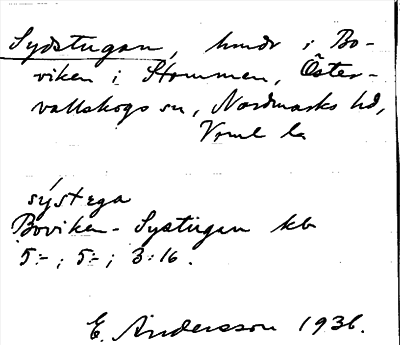 Sydstugan, hmdr i Bo-
viken i Hommen, Öster-
vallskogs sn, Nordmarks hd,
Vrml la
sýstega
Boviken - Systugan kb
5:- ; 5:- ; 3:16.
E. Andersson 1936.